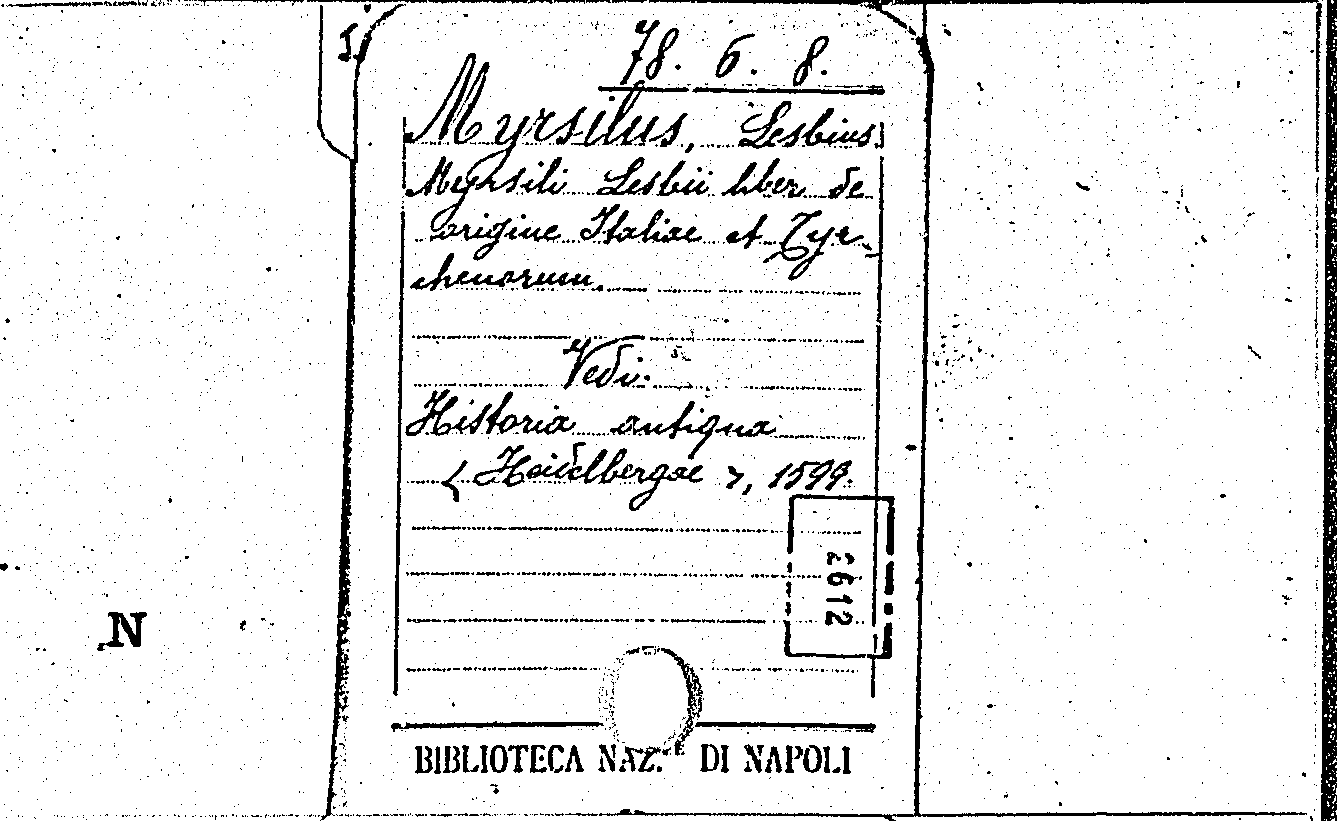 78. 6. 8.
Myrsilus, Lesbius.
Myrsili Lesbii liber de
origine Italiae et Tyr-
rhenorum.
Vedi:
Historia antiqua
Heidelbergae, 1599.
2612
N
BIBLIOTECA NAZ. DI NAPOLI